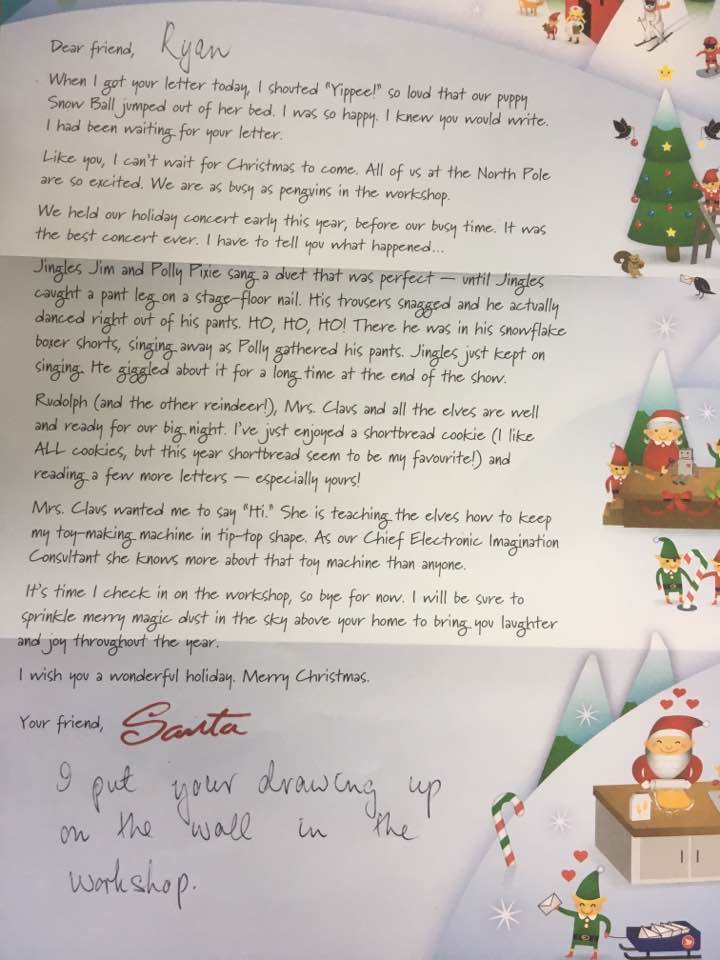 Dear friend, Ryan
When I got your letter today, I shouted "Yippee!" so loud that our puppy
Snow Ball jumped out of her bed. I was so happy. I knew you would write.
I had been waiting for your letter.
Like you, I can't wait for Christmas to come. All of us at the North Pole
are so excited. We are as busy as penguins in the workshop.
We held our holiday concert early this year, before our busy time. It was
the best concert ever. I have to tell you what happened...
Jingles Jim and Polly Pixie sang a duet that was perfect — until Jingles
caught a pant leg on a stage-floor nail. His trousers snagged and he actually
danced right out of his pants. HO, HO, HO! There he was in his snowflake
boxer shorts, singing away as Polly gathered his pants. Jingles just kept on
singing. He giggled about it for a long time at the end of the show.
Rudolph (and the other reindeer!), Mrs. Claus and all the elves are well
and ready for our big night. I've just enjoyed a shortbread cookie (I like
ALL cookies, but this year shortbread seem to be my favourite!) and
reading a few more letters — especially yours!
Mrs. Claus wanted me to say "Hi." She is teaching the elves how to keep
my toy-making machine in tip-top shape. As our Chief Electronic Imagination
Consultant she knows more about that toy machine than anyone.
It's time I check in on the workshop, so bye for now. I will be sure to
sprinkle merry magic dust in the sky above your home to bring you laughter
and joy throughout the year.
I wish you a wonderful holiday. Merry Christmas.
Your friend, Santa
I put your drawing up
on the wall in the
workshop.